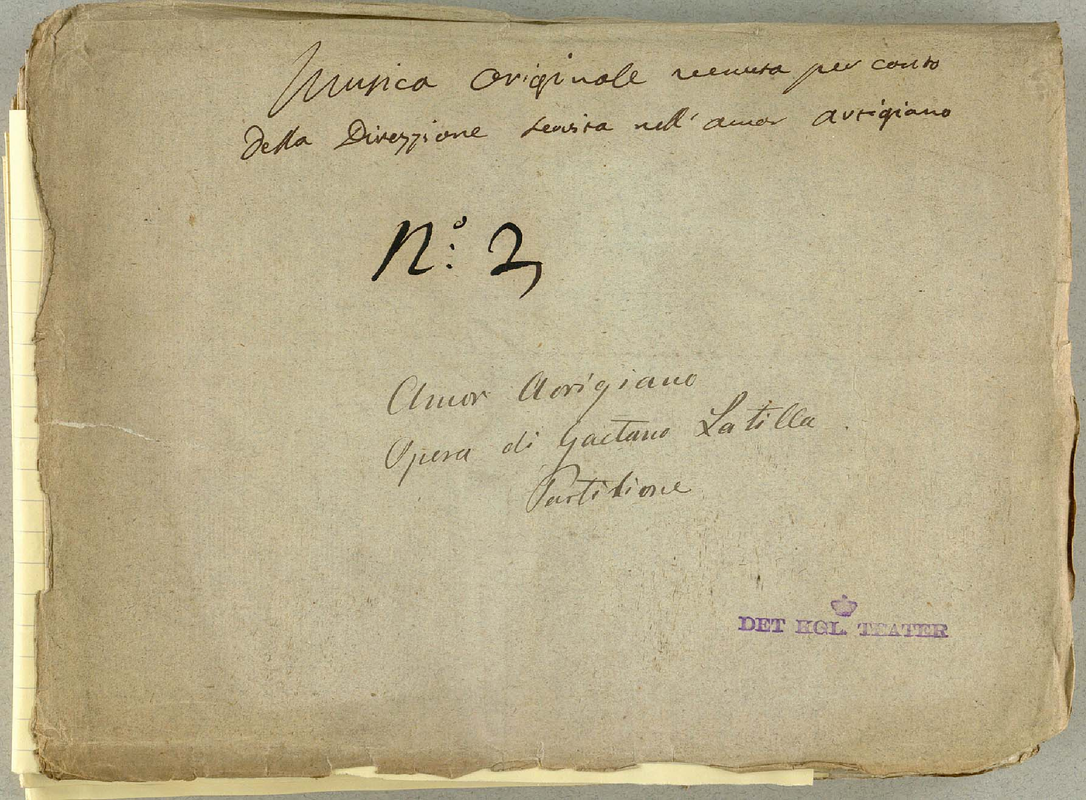 Musica originale venuta per conto
della Direzzione servita nell' amor artigiano
No: 2,
Amor Artigiano
Opera di Gaetano Latilla.
Partitione
DET KGL. TEATER